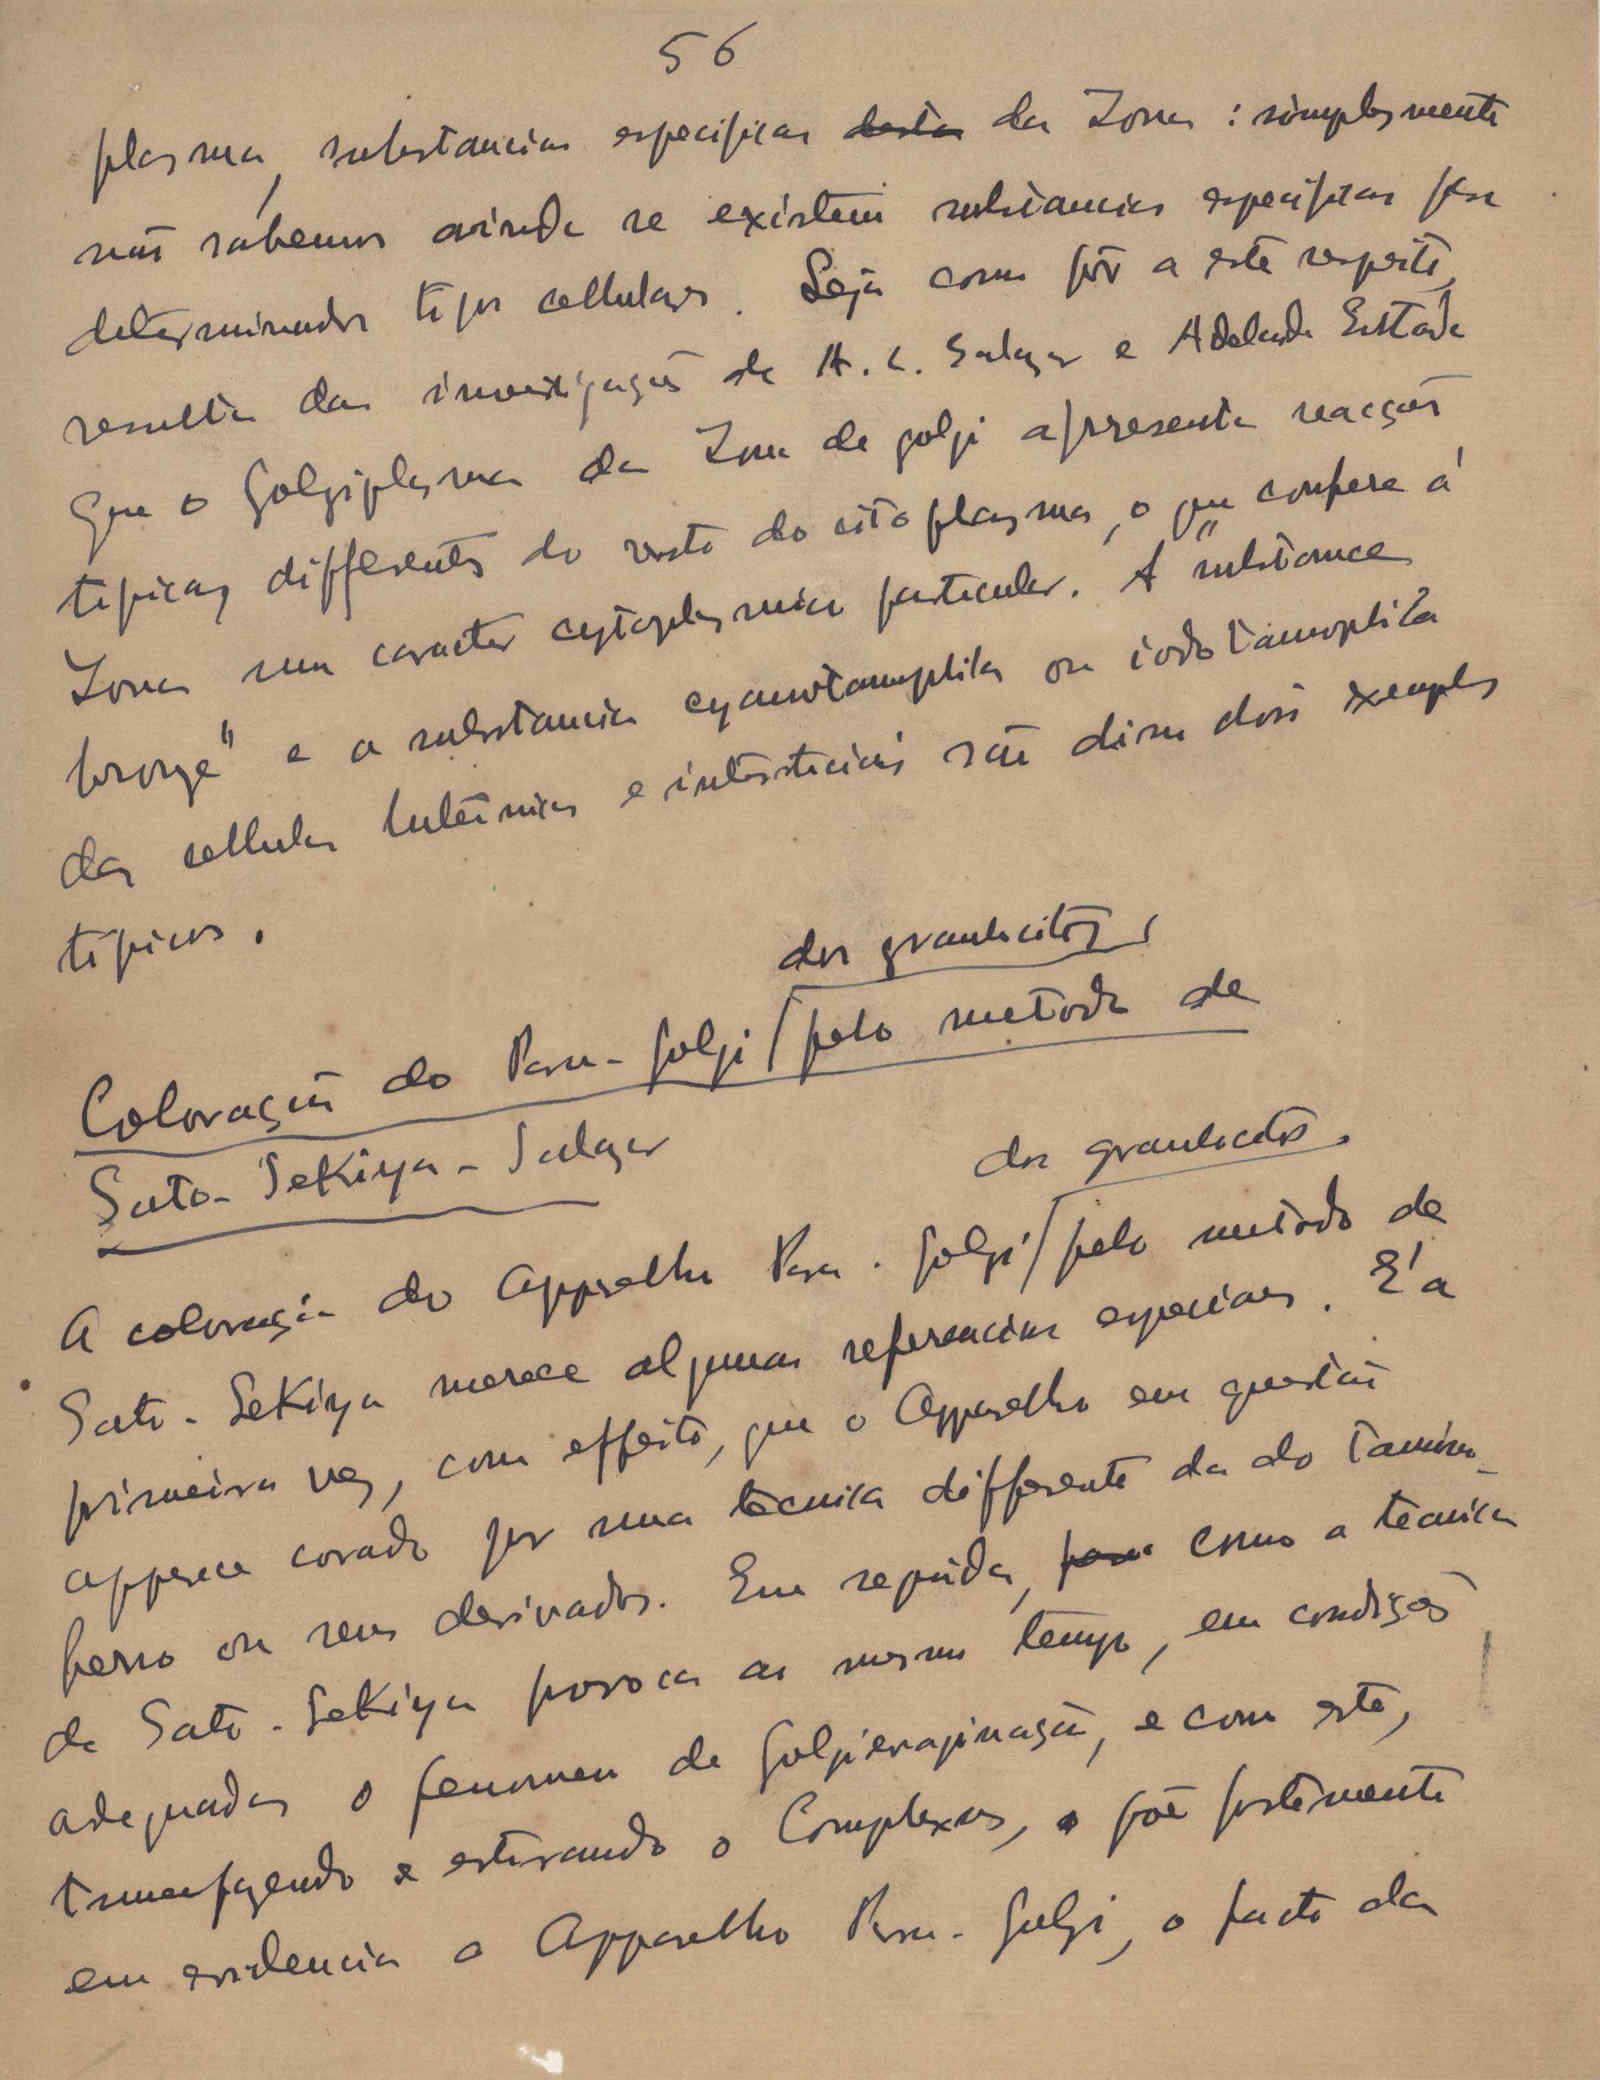 56
plasma, substancias especificas desta da Zona : simplesmente
não sabemos ainda se existem substancias especificas para
determinados tipos cellulares. Seja como fôr a este respeito,
resulta das investigações de A. L. Salazar e Adelaide Estrada
que o Golgiplasma da Zona de golgi apresenta reacções
tipicas differentes do resto do citoplasma, o que confere á
Zona um caracter cytoplasmico particular. A "substance
brorge" e a substancia cyanotannophila ou iodotannophila
das cellulas luteinicas e intersticiais são disso dois exemplos
tipicos.
dos granulocitos
Coloração do Para-Golgi pelo metodo de
Sato-Sekiya-Salazar
dos granulocitos.
A coloração do Apparelho Para-Golgi pelo metodo de
Sato-Sekiya merece algumas referencias especiaes. E' a
primeira vez, com effeito, que o Apparelho em questão
apparece corado por uma tecnica differente da do tanino-
ferro ou seus derivados. Em seguida, como a tecnica
de Sato-Sekiya provoca ao mesmo tempo, em condições
adequadas o fenomeno de Golgievaginação, e com este,
tumefazendo e estirando o Complexus, põe fortemente
em evidencia o Apparelho Para-Golgi, o facto da